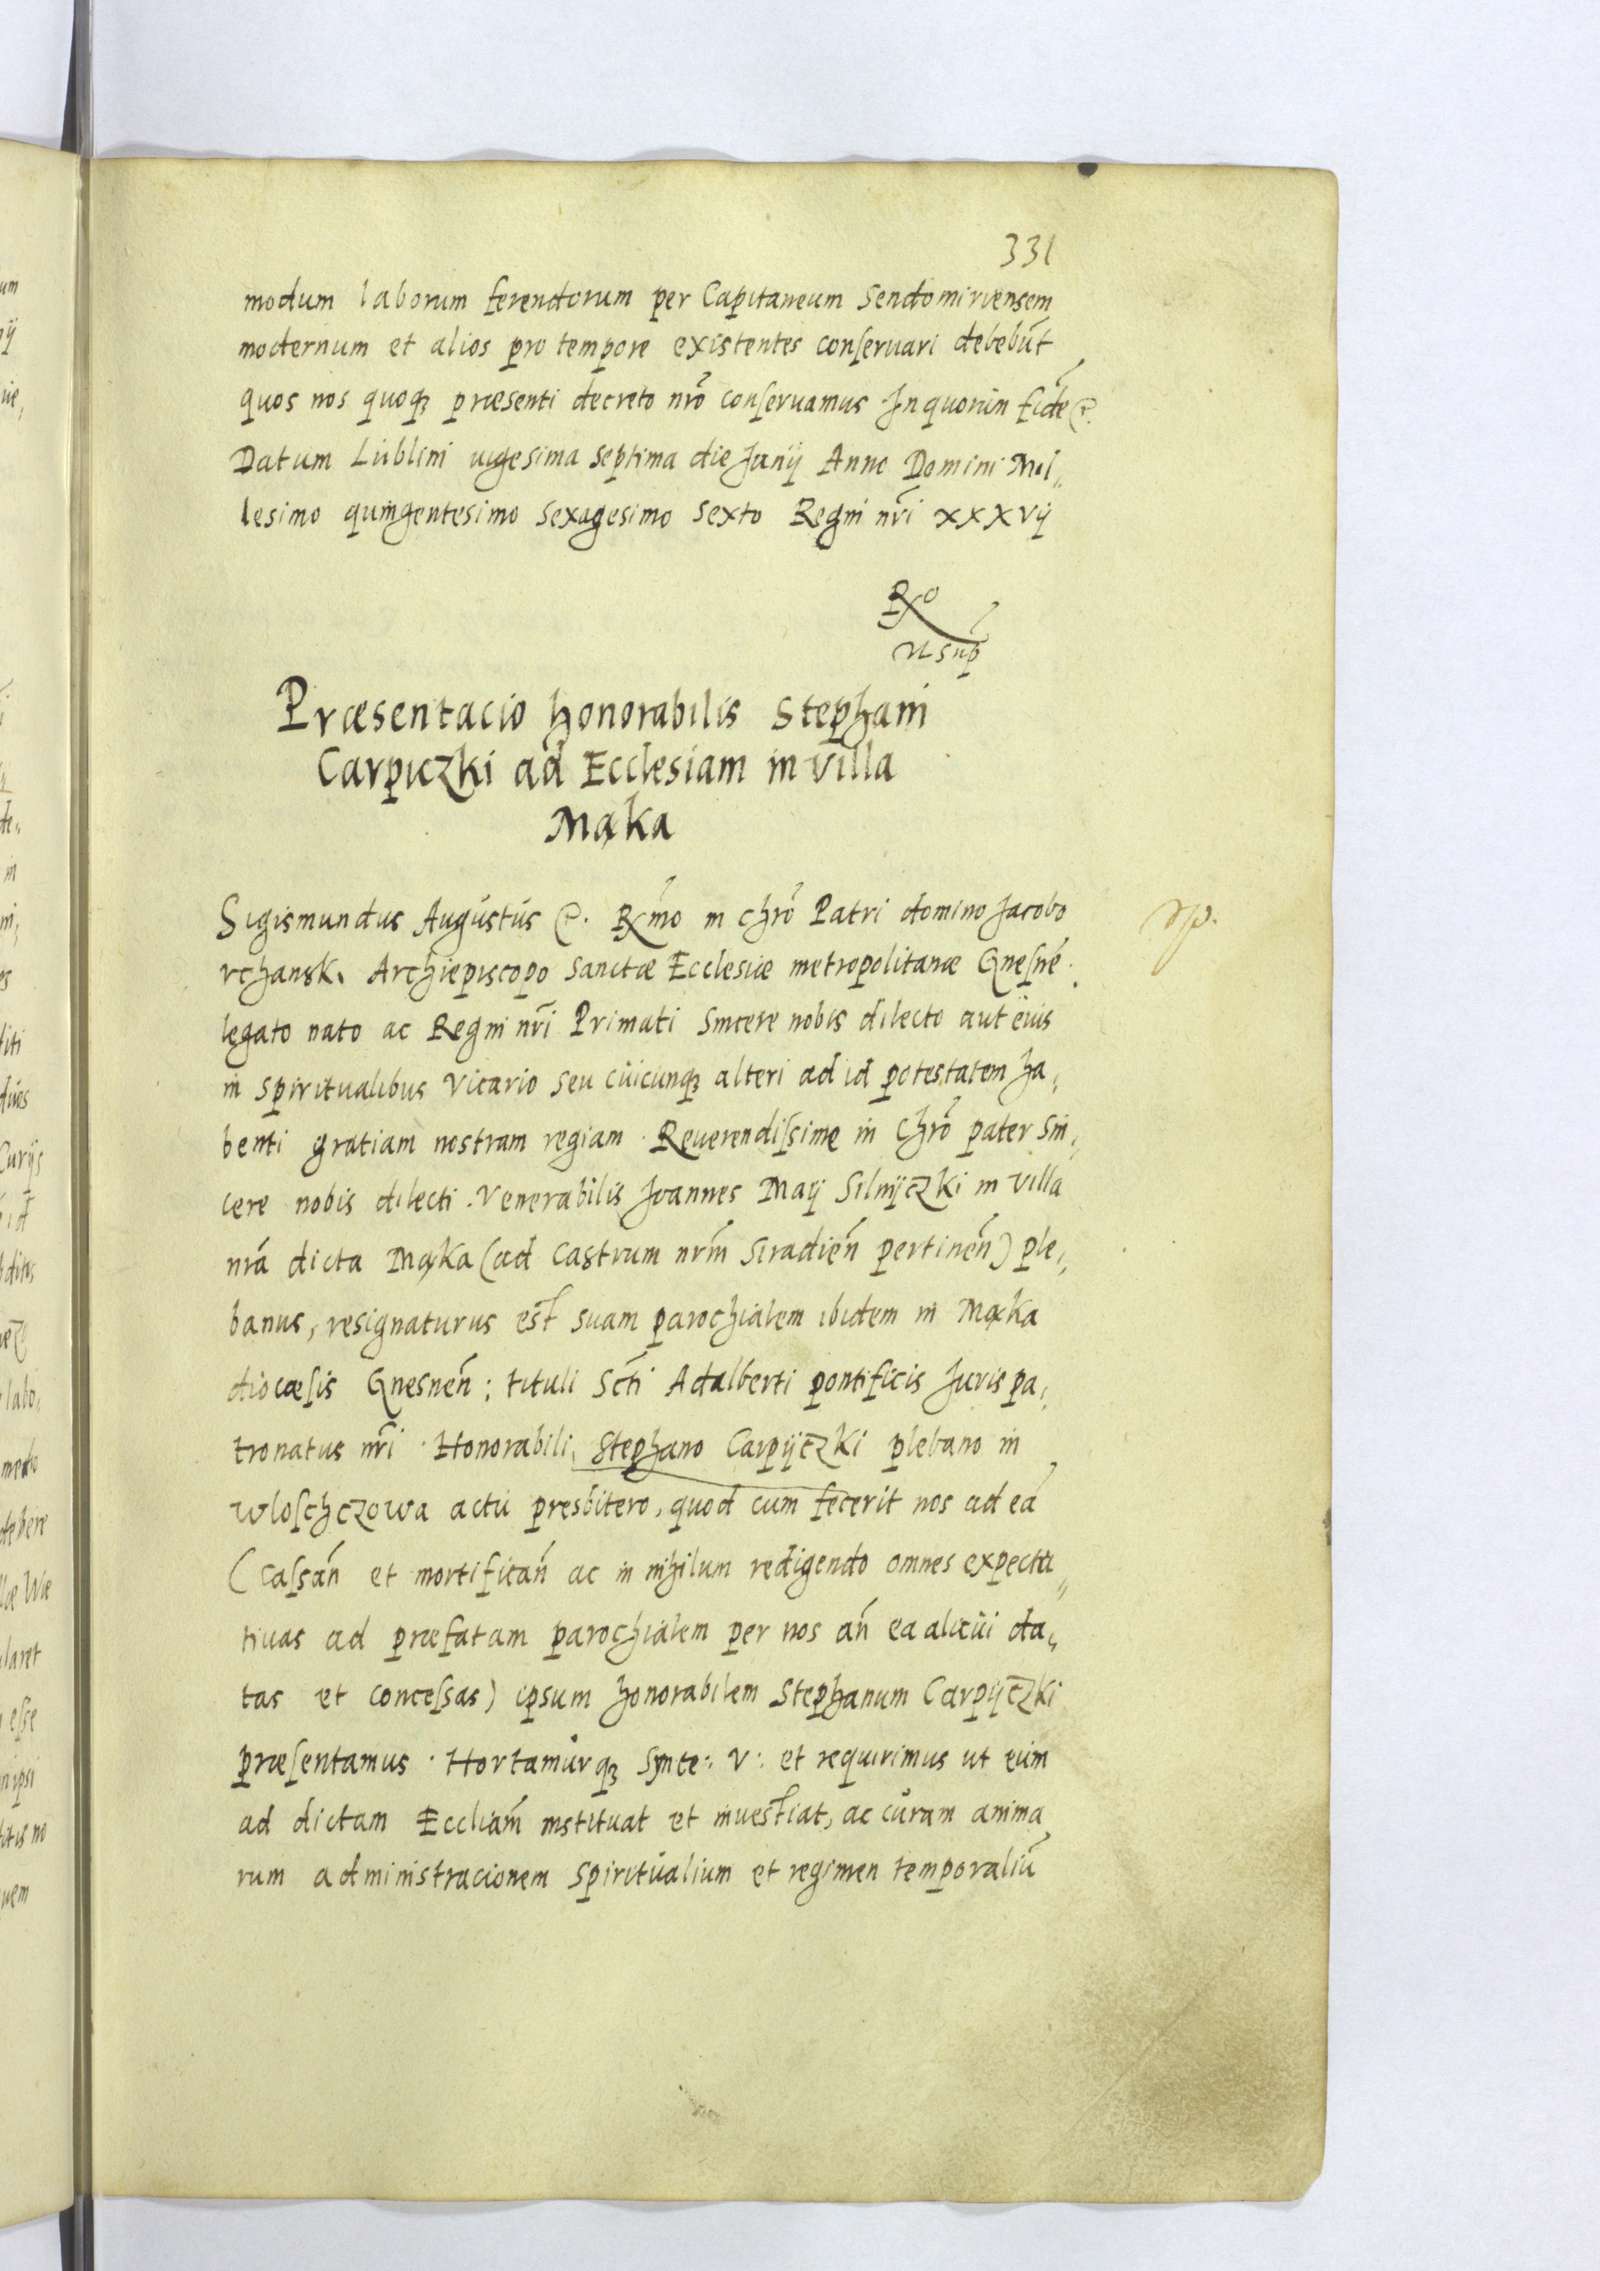 331
modum laborum ferendorum per Capitaneum Sendomiriensem
modernum et alios pro tempore existentes conseruari debebūt
quos nos quoqꝫ præsenti decreto nr̄o conseruamus In quorum fidē &.
Datum Lublini uigesima septima die Junij Anno Domini Mil„
lesimo quingentesimo sexagesimo sexto Regni nr̄i XXXVij
Rᵒ
ut sup̄
Præsentacio honorabilis Stephani
Carpiczki ad Ecclesiam in villa
Mąka
Sigismundus Augustus &. Rmo in chrō Patri domino Jacobo
vchansk. Archiepiscopo sanctæ Ecclesiæ metropolitanæ Gnesnē.
legato nato ac Regni nr̄i Primati sincere nobis dilecto aut eius
in spiritualibus vicario seu cuicunqꝫ alteri ad id potestatem ha„
benti gratiam nostram regiam. Reuerendissime in chrō pater sin„
cere nobis dilecti. Venerabilis Joannes Maij Silnijczki in villa
nr̄a dicta Mąka (ad castrum nr̄m Siradień pertineń) ple„
banus, resignaturus est suam parochialem ibidem in Mąka
diocæsis Gnesneń; tituli Sc̄ti Adalberti pontificis Juris pa„
tronatus nr̄i. Honorabili Stephano Carpijczki plebano in
wloschczowa actu presbitero, quod cum fecerit nos ad eā
(Cassań et mortificań ac in nihilum redigendo omnes expecta„
tiuas ad præfatam parochialem per nos ań ea alicui da„
tas et concessas) ipsum honorabilem Stephanum Carpijczki
præsentamus. Hortamurqꝫ Synce: V: et requirimus ut eum
ad dictam Eccliam̄ instituat et inuestiat, ac curam anima
rum administracionem spiritualium et regimen temporaliū